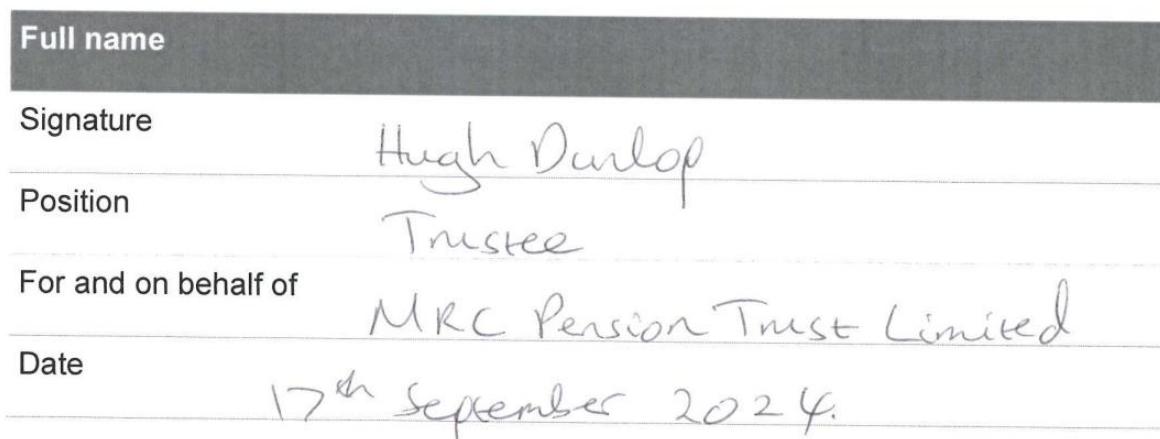 Full name
Signature Hugh Dunlop
Position Trustee
For and on behalf of MRC Pension Trust Limited
Date 17th September 2024.